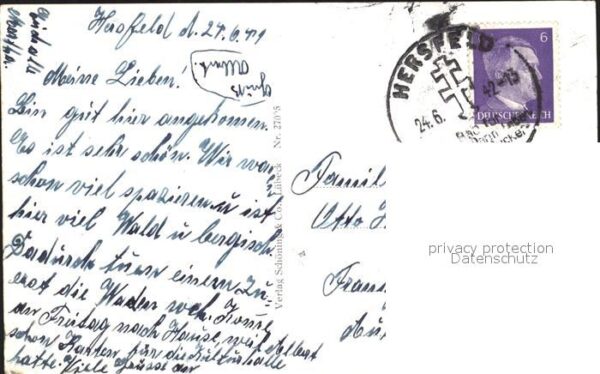 Hersfeld d. 24.6.41
Meine Lieben.
Bin gut hier angekommen.
Es ist sehr schön. Wir
schon viel spazieren u ist
hier viel Wald u bergisch.
Dadurch tuen einem zu-
erst die Waden weh. Komme
am Freitag nach Hause weil Albert
schon Karten für die
hatte. Viele Grüsse
Gruß
Albert.
und alle
HERSFELD
24.6. 42-13
6
DEUTSCHES REICH
Verlag Schöning & Co., Lübeck Nr. 270 S
Famil
Otto
Fran
privacy protection
Datenschutz